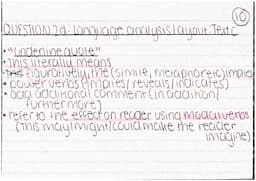 10
QUESTION 2d: Language analysis/layout Text C
• "underline quote"
• This literally means
• figuratively, the (simile, metaphoretc) implies
• power verbs (implies/reveals/indicates)
• add additional comment (in addition/
furthermore)
• refer to the effect on reader using modal verbs
(this may/might/could make the reader
imagine)